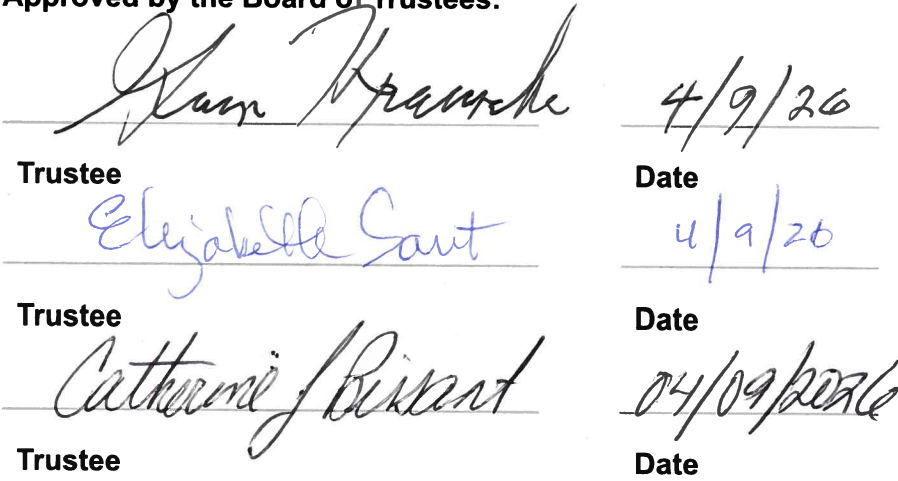 Approved by the Board of Trustees:
4/9/26
Trustee Date
Elizabeth Sant 4/9/26
Trustee Date
Catherine J Bissant 04/09/2026
Trustee Date